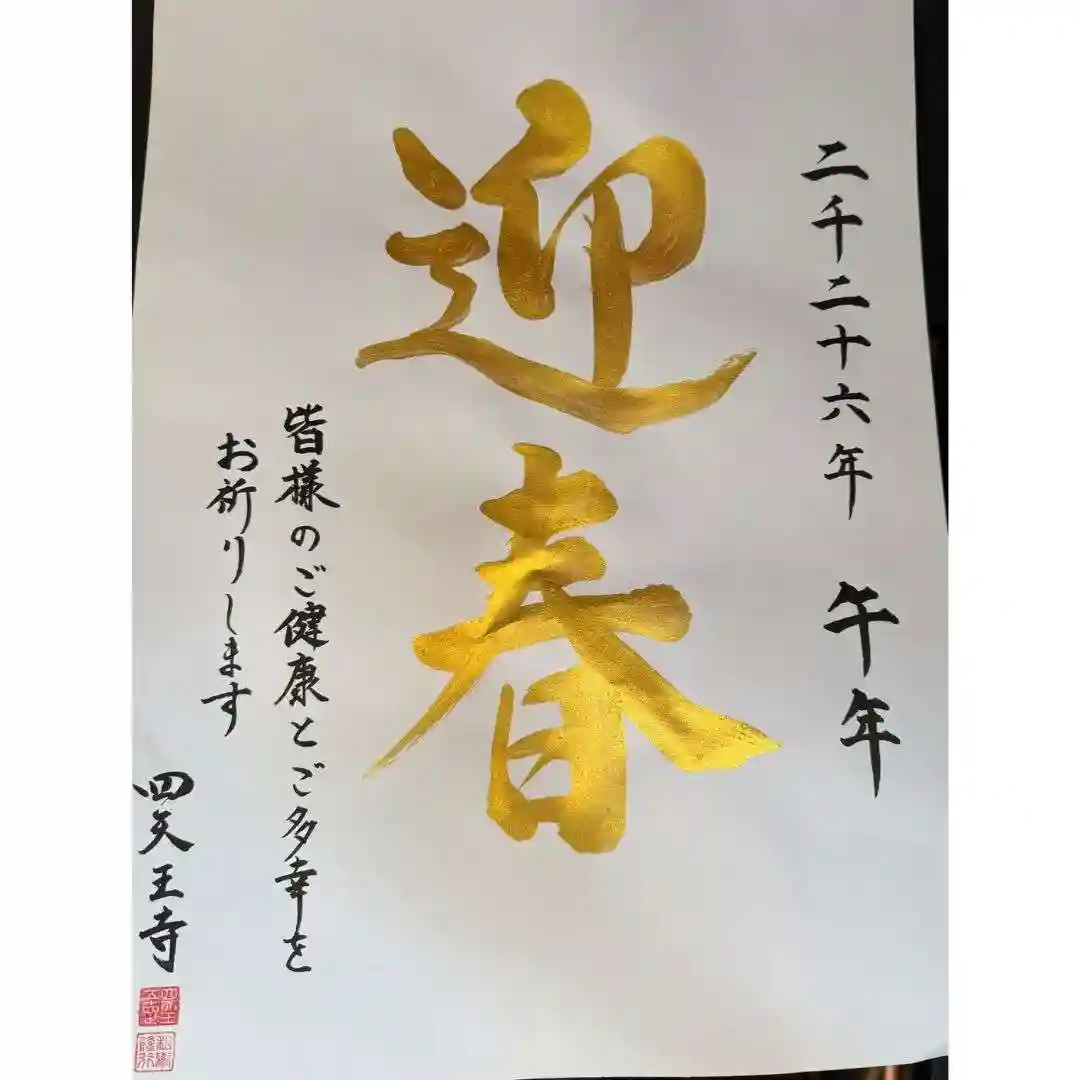 二千二十六年 午年
迎春
皆様のご健康とご多幸を
お祈りします
四天王寺